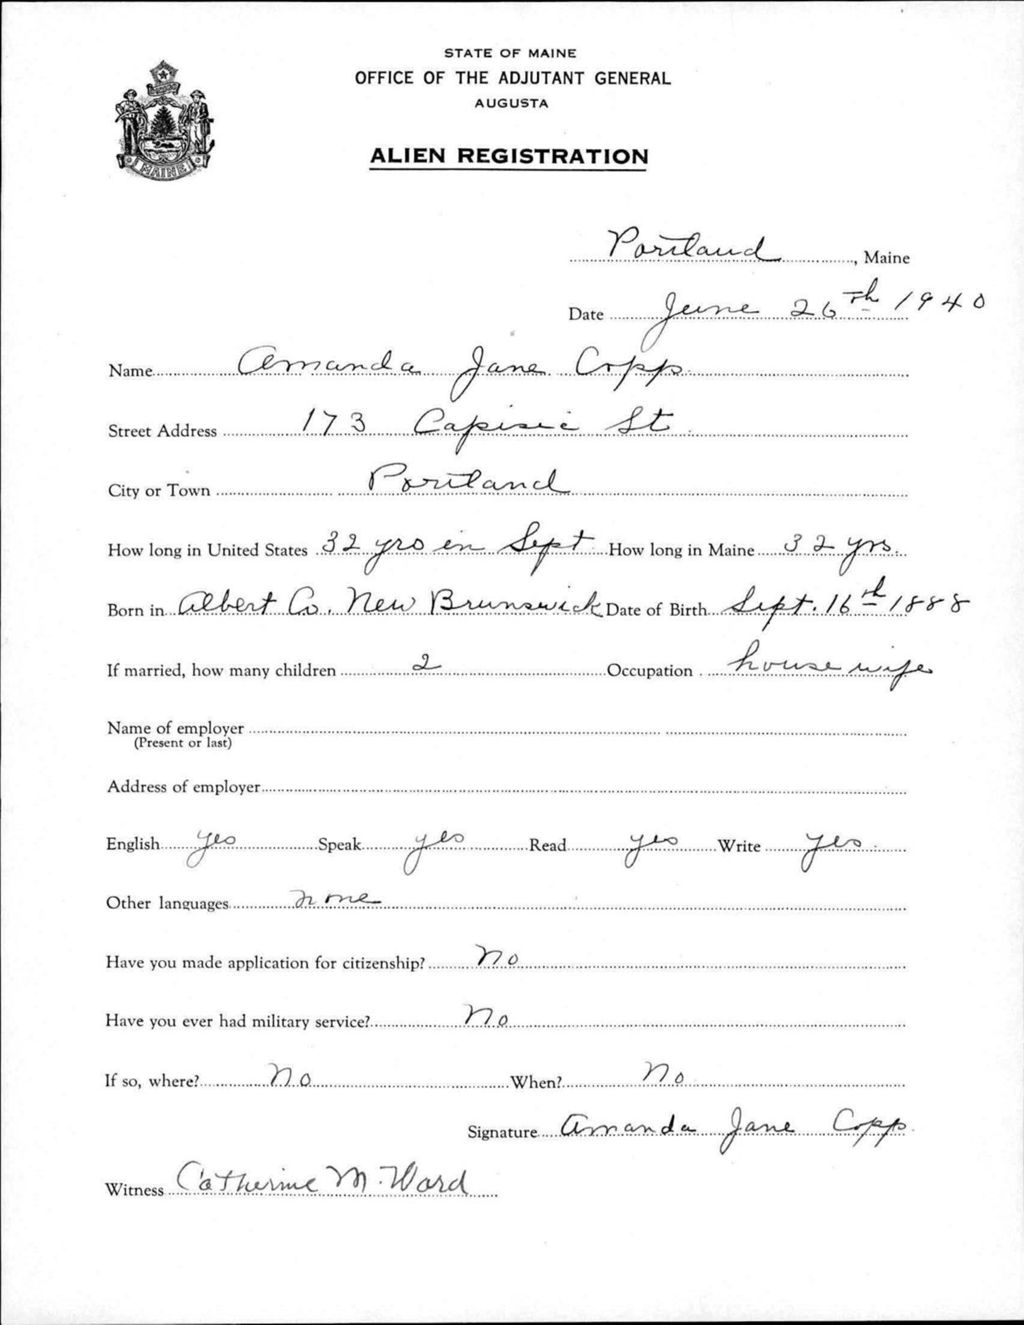 STATE OF MAINE
OFFICE OF THE ADJUTANT GENERAL
AUGUSTA
ALIEN REGISTRATION
MAINE
Portland, Maine
Date June 26th 1940
Name Amanda Jane Copp
Street Address 173 Capisic St
City or Town Portland
How long in United States 32 yrs in Sept How long in Maine 32 yrs.
Born in Albert Co. New Brunswick Date of Birth Sept. 16th 1888
If married, how many children 2 Occupation house wife
Name of employer
(Present or last)
Address of employer
English yes Speak yes Read yes Write yes
Other languages none
Have you made application for citizenship? No
Have you ever had military service? No
If so, where? No When? No
Signature Amanda Jane Copp
Witness Catherine M. Ward